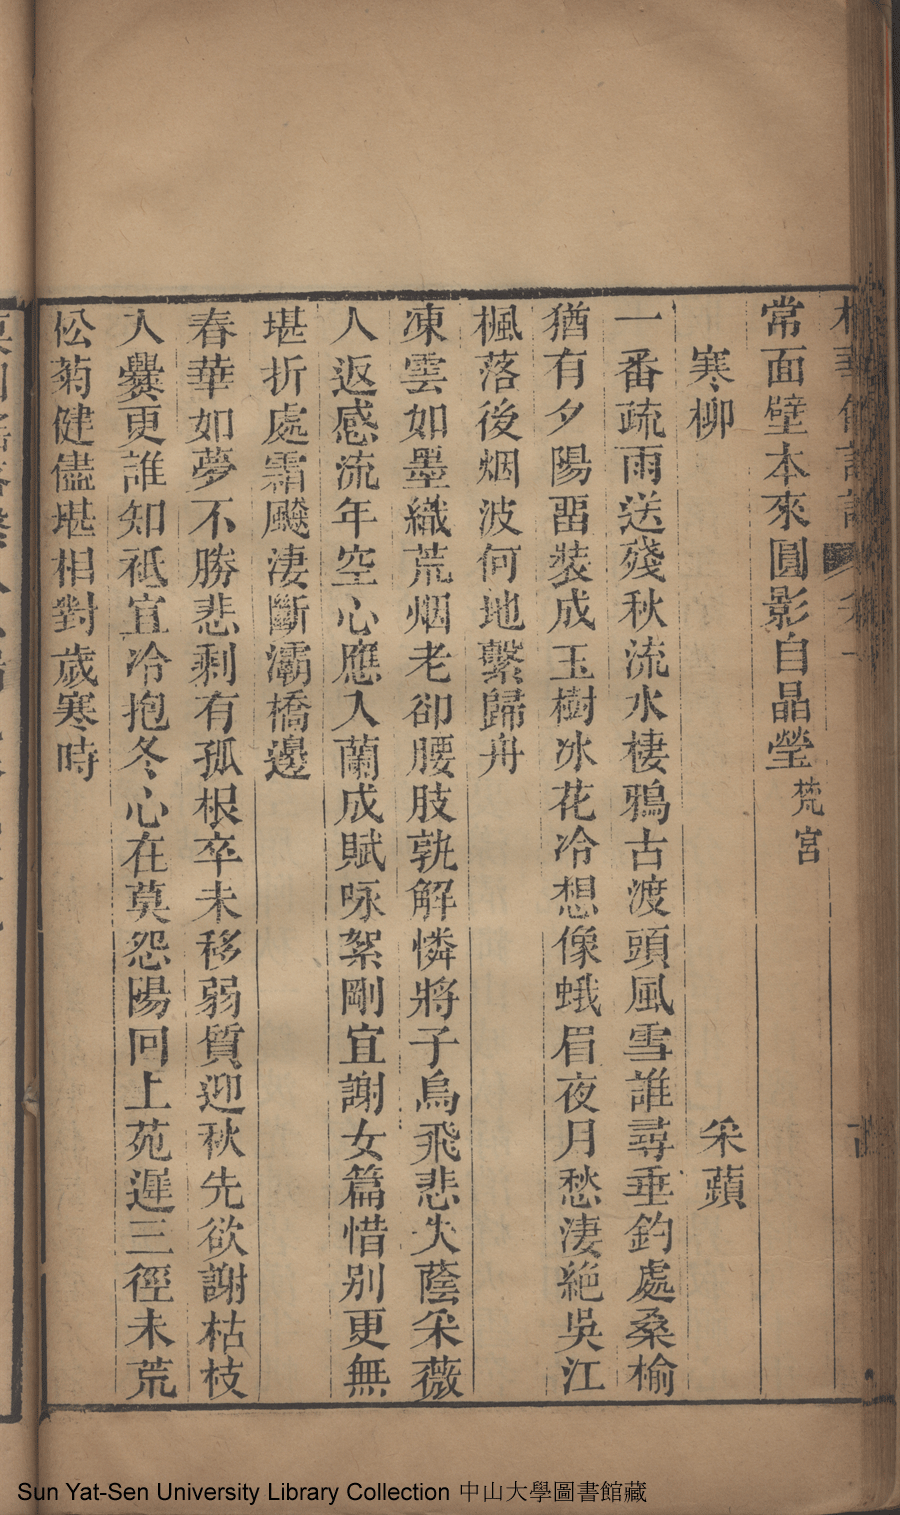 常面壁本來圓影自晶瑩梵宮
寒柳　采蘋
一番疏雨送殘秋流水棲鴉古渡頭風雪誰尋垂釣處桑榆
猶有夕陽畱裝成玉樹冰花冷想像蛾眉夜月愁淒絕吳江
楓落後烟波何地繫歸舟
凍雲如墨織荒烟老卻腰肢孰解憐將子烏飛悲失蔭采薇
人返感流年空心應入蘭成賦咏絮剛宜謝女篇惜别更無
堪折處霜飈淒斷灞橋邊
春華如夢不勝悲剩有孤根卒未移弱質迎秋先欲謝枯枝
人爨更誰知祗宜冷抱冬心在莫怨陽回上苑遲三徑未荒
松菊健儘堪相對歲寒時
Sun Yat-Sen University Library Collection 中山大學圖書館藏